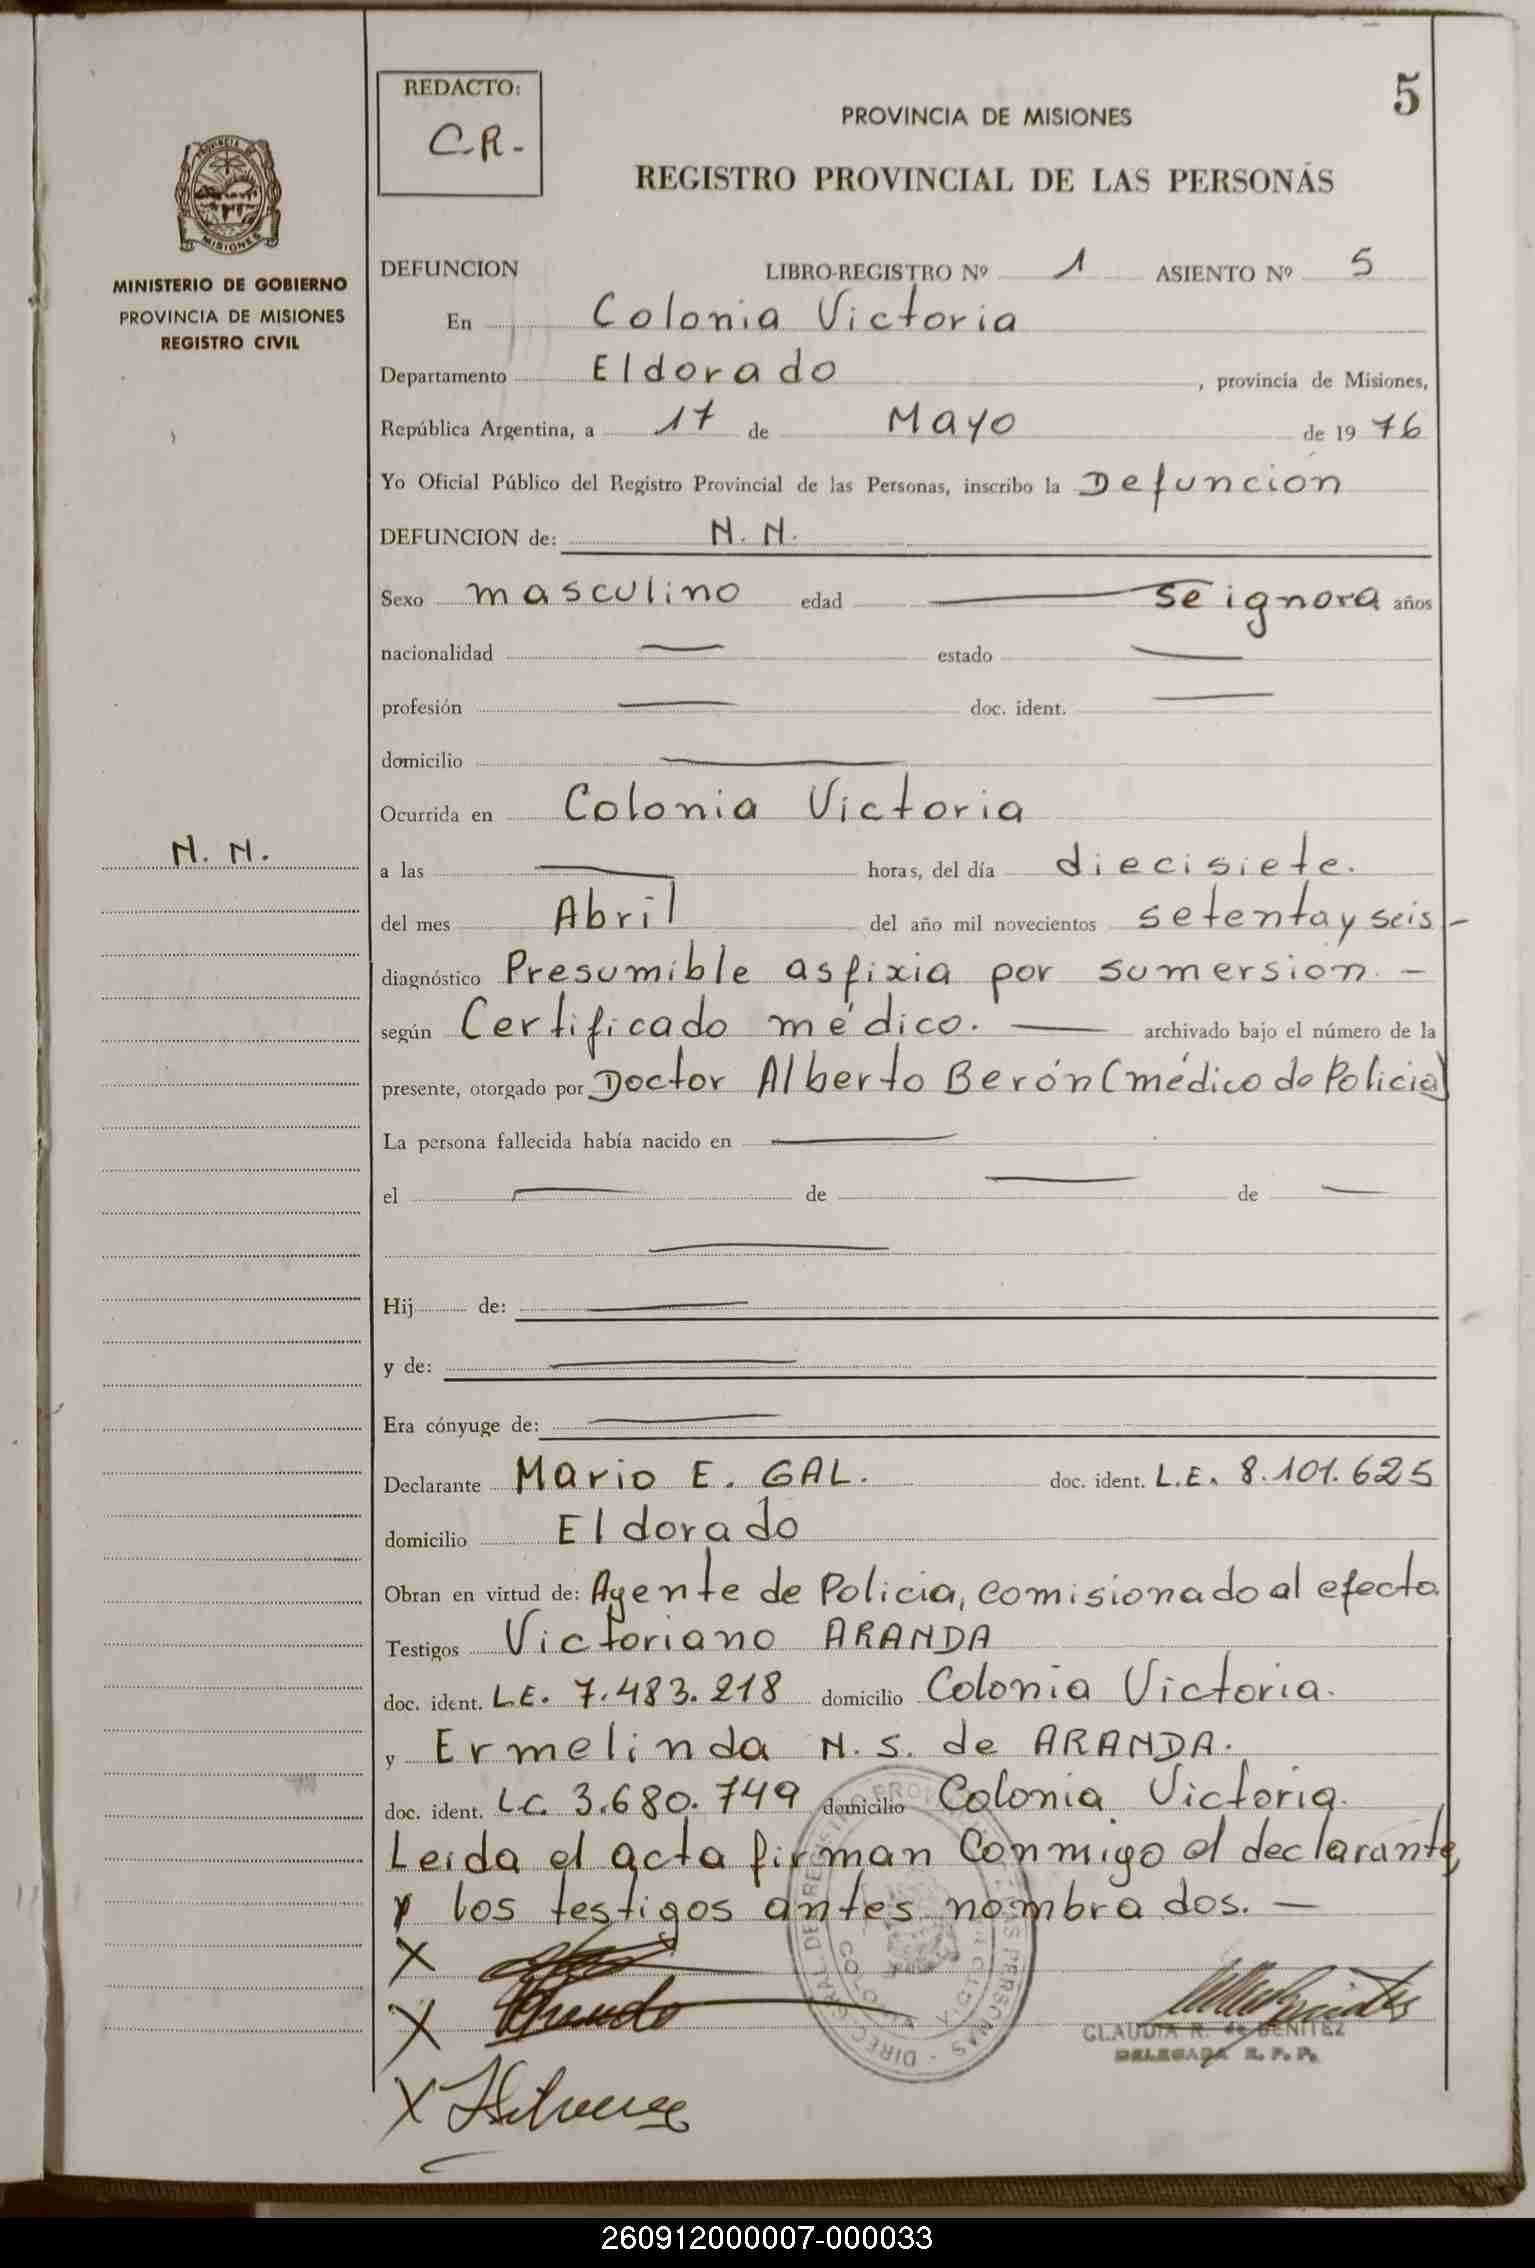 REDACTO:
C.R.-
5
PROVINCIA DE MISIONES
REGISTRO PROVINCIAL DE LAS PERSONAS
PROVINCIA DE
MISIONES
MINISTERIO DE GOBIERNO
PROVINCIA DE MISIONES
REGISTRO CIVIL
DEFUNCION LIBRO-REGISTRO Nº 1 ASIENTO Nº 5
En Colonia Victoria
Departamento Eldorado, provincia de Misiones,
República Argentina, a 17 de Mayo de 1976
Yo Oficial Público del Registro Provincial de las Personas, inscribo la Defuncion
DEFUNCION de: N. N.
Sexo masculino edad se ignora años
nacionalidad — estado —
profesión — doc. ident. —
domicilio —
Ocurrida en Colonia Victoria
N. N.
a las — horas, del día diecisiete.
del mes Abril del año mil novecientos setenta y seis -
diagnóstico Presumible asfixia por sumersion. -
según Certificado médico. — archivado bajo el número de la
presente, otorgado por Doctor Alberto Berón (médico de Policia)
La persona fallecida había nacido en —
el — de — de —
—
Hij de: —
y de: —
Era cónyuge de: —
Declarante Mario E. GAL. doc. ident. L.E. 8.101.625
domicilio Eldorado
Obran en virtud de: Agente de Policia, comisionado al efecto.
Testigos Victoriano ARANDA
doc. ident. L.E. 7.483.218 domicilio Colonia Victoria.
y Ermelinda N. S. de ARANDA.
doc. ident. L.C. 3.680.749 domicilio Colonia Victoria.
Leida el acta firman conmigo el declarante,
y los testigos antes nombrados. —
X
X
X
CLAUDIA R. de BENITEZ
DELEGADA R. P. P.
260912000007-000033